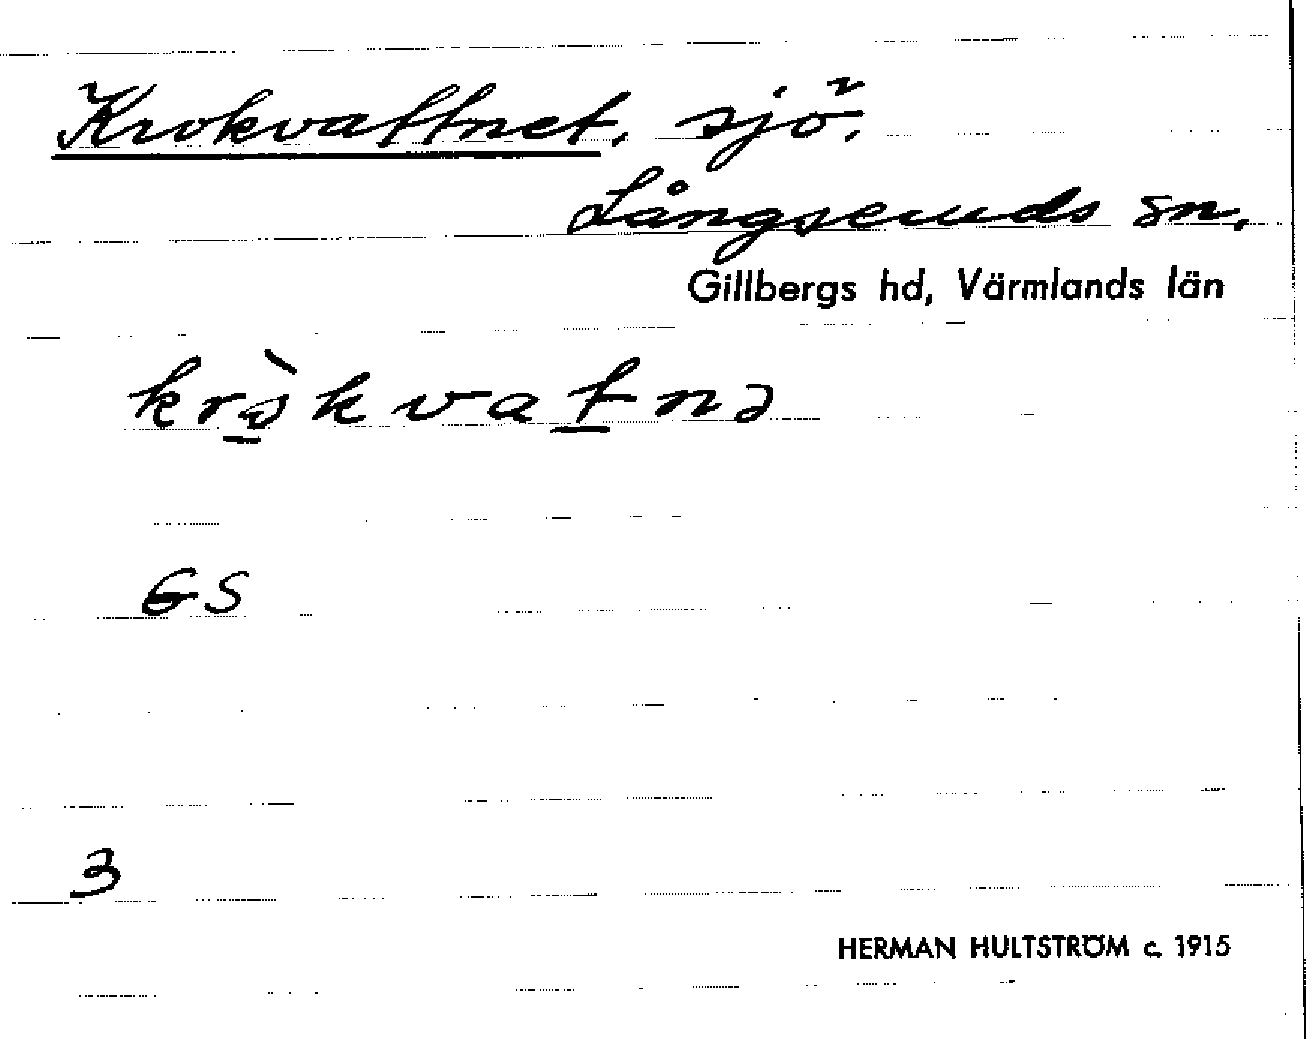 Krokvattnet, sjö.
Långseruds sn.
Gillbergs hd, Värmlands län
krò̱kvaṯnə
GS
3
HERMAN HULTSTRÖM c. 1915